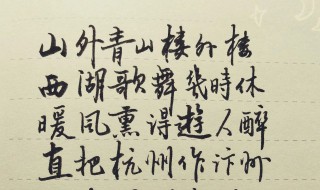 山外青山楼外楼
西湖歌舞幾時休
暖风熏得遊人醉
直把杭州作汴州